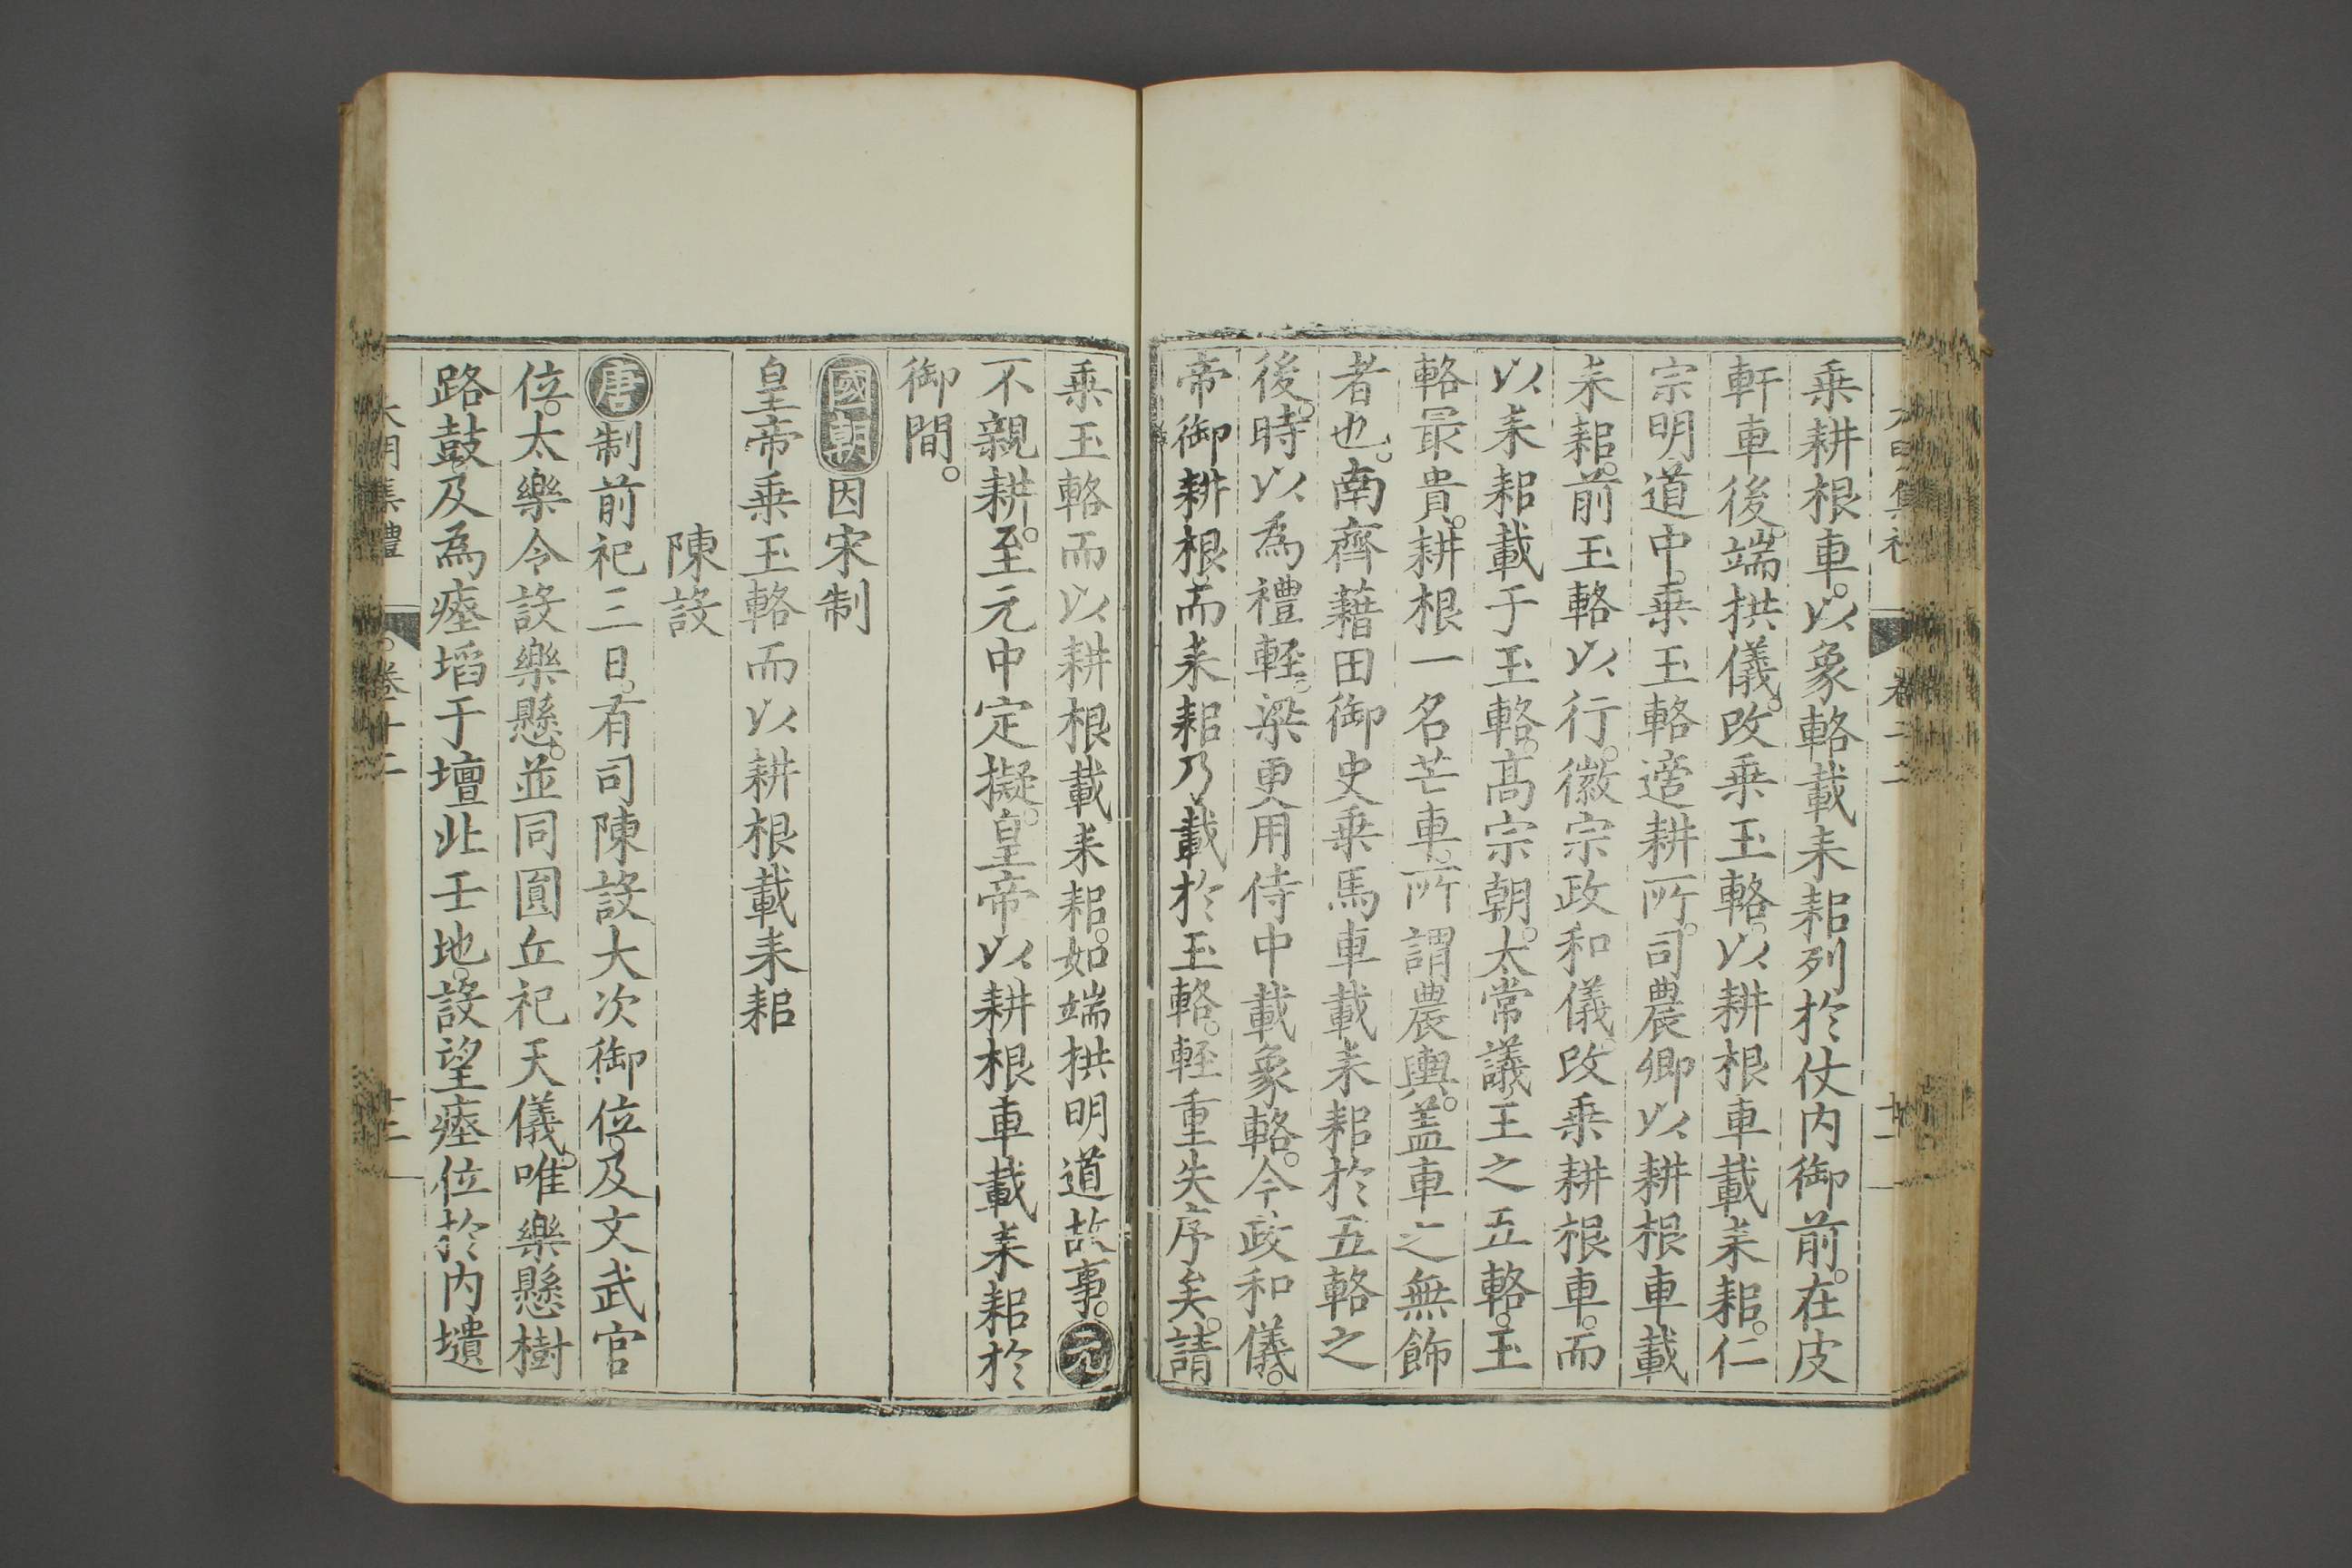 乗耕根車。以象輅載耒耜列於仗内御前。在皮
軒車後。端拱儀。改乗玉輅。以耕根車載耒耜。仁
宗明道中。乗玉輅適耕所。司農卿以耕根車載
耒耜。前玉輅以行。徽宗政和儀。改乗耕根車。而
以耒耜載于玉輅。髙宗朝。太常議王之五輅。玉
輅最貴。耕根一名芒車。所謂農輿。蓋車之無飾
者也。南齊藉田御史乗馬車載耒耜於五輅之
後。時以為禮輕。梁更用侍中載象輅。今政和儀。
帝御耕根。而耒耜乃載於玉輅。輕重失序矣。請
乗玉輅而以耕根載耒耜。如端拱明道故事。元
不親耕。至元中定擬。皇帝以耕根車載耒耜於
御間。
國朝因宋制
皇帝乗玉輅而以耕根載耒耜
陳設
唐制前祀三日。有司陳設大次御位。及文武官
位。太樂令設樂懸。並同圓丘祀天儀。唯樂懸樹
路鼓及為瘞埳于壇北壬地。設望瘞位於内壝
大明集禮 卷十二 十二